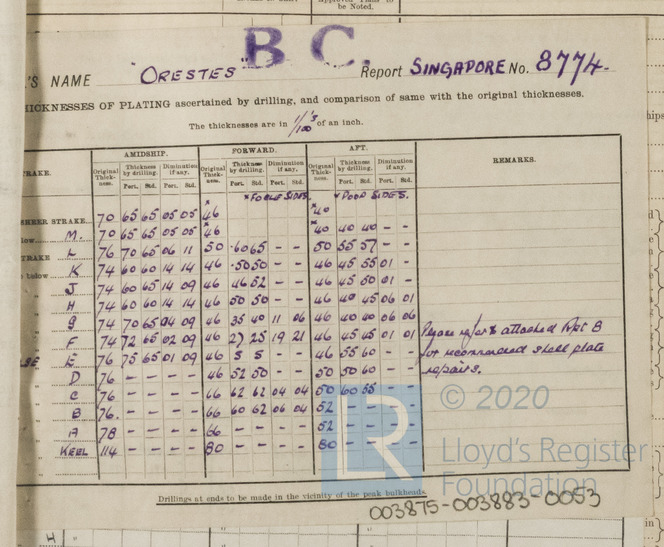 be Noted.
B C.
'S NAME "ORESTES" Report SINGAPORE No. 8774.
HICKNESSES OF PLATING ascertained by drilling, and comparison of same with the original thicknesses.
The thicknesses are in 1/100 of an inch.
TRAKE. AMIDSHIP. FORWARD. AFT. REMARKS.
Original Thickness. Thickness by drilling. Diminution if any. Original Thickness. Thickness by drilling. Diminution if any. Original Thickness. Thickness by drilling. Diminution if any.
Port. Std. Port. Std. Port. Std. Port. Std. Port. Std. Port. Std.
* FOCLE SIDES * POOP SIDES.
SHEER STRAKE 70 65 65 05 05 * 46 * 40
low M. 70 65 65 05 05 * 46 * 40 40 40 - -
TRAKE L 76 70 65 06 11 50 .60 65 - - 50 55 57 - -
below K 74 60 60 14 14 46 .50 50 - - 46 45 55 01 -
" J 74 60 65 14 09 46 46 52 - - 46 45 50 01 -
" H 74 60 60 14 14 46 50 50 - - 46 40 45 06 01
" G 74 70 65 04 09 46 35 40 11 06 46 40 40 06 06
" F 74 72 65 02 09 46 27 25 19 21 46 45 45 01 01 Please refer to attached Rpt 8
E 76 75 65 01 09 46 S S - - 46 55 60 - - for recommended shell plate
" D 76 - - - - 46 52 50 - - 50 50 60 - - repairs.
" C 76 - - - - 66 62 62 04 04 50 60 55 - -
" B 76. - - - - 66 60 62 06 04 52 - - - -
" A 78 - - - - 66 - - - - 52 - - - -
KEEL 114 - - - - 80 - - - - 80 - - - -
Drillings at ends to be made in the vicinity of the peak bulkheads.
LR
© 2020
Lloyd's Register
Foundation
003875-003883-0053
H